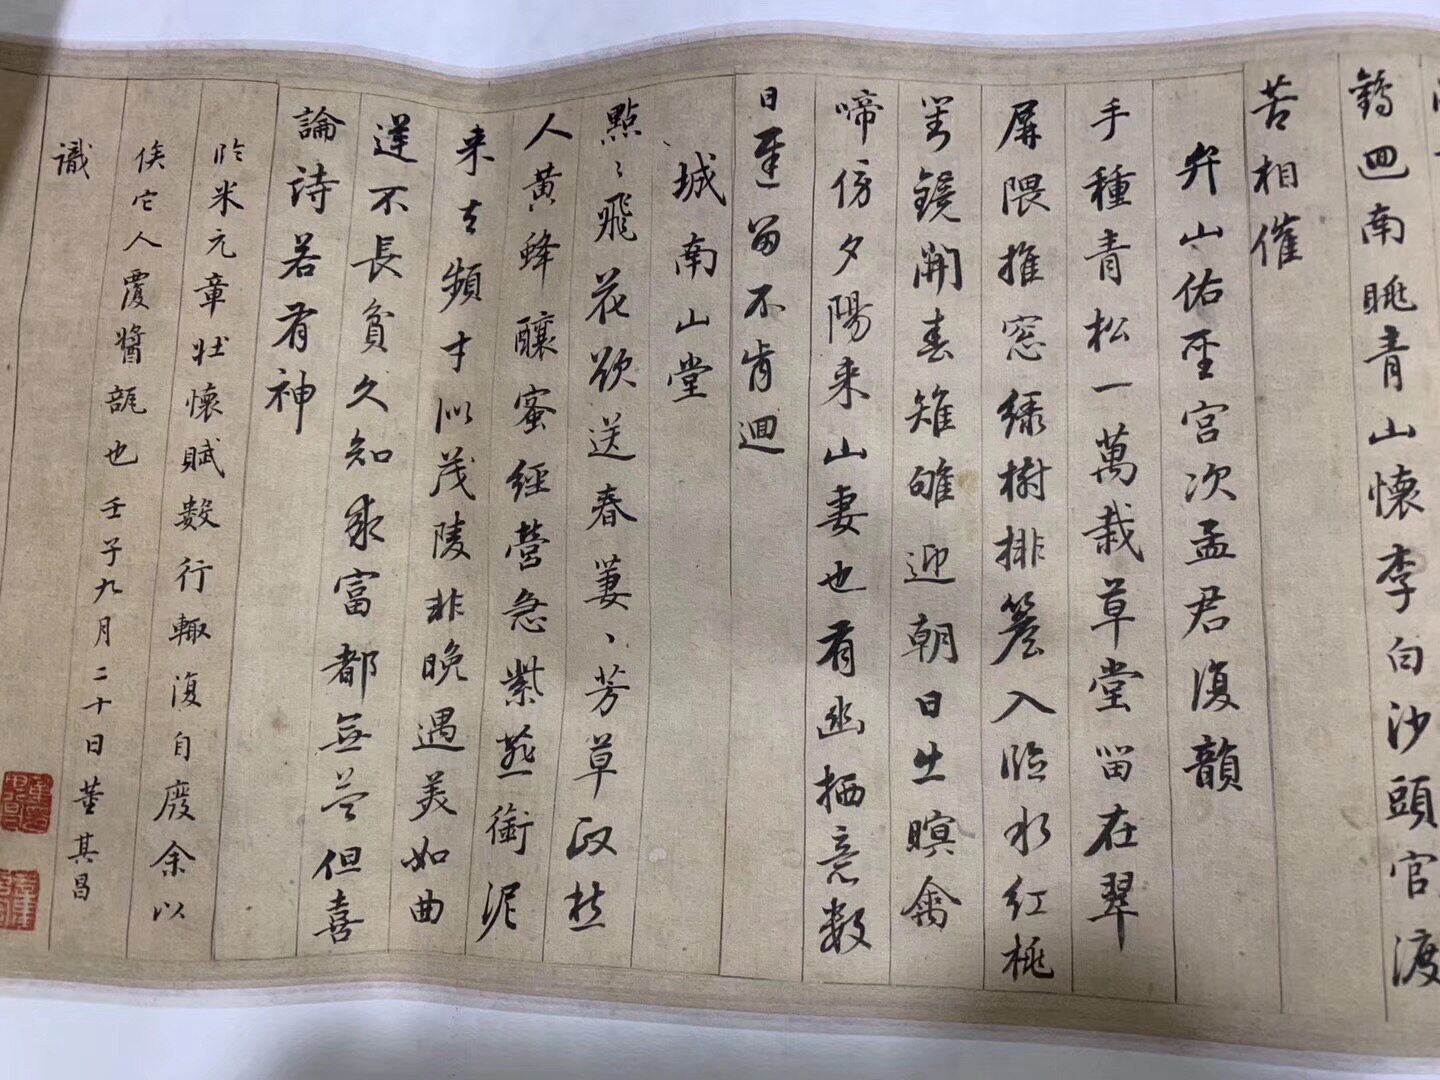 鶴迴南眺青山懷李白沙頭官渡
苦相催
弁山佑聖宮次孟君復韻
手種青松一萬栽草堂留在翠
屏隈推窓綠樹排簷入臨水紅桃
對鏡開春雉雊迎朝日出暝禽
啼傍夕陽来山妻也有幽栖意數
日遲留不肯迴
城南山堂
點點飛花欲送春萋萋芳草政愁
人黃蜂釀蜜經營急紫燕銜泥
来去頻才似茂陵非晚遇美如曲
逆不長貧久知求富都無益但喜
論詩若有神
臨米元章壮懷賦數行輒復自廢余以
俟它人覆醬瓿也 壬子九月二十日董其昌
識